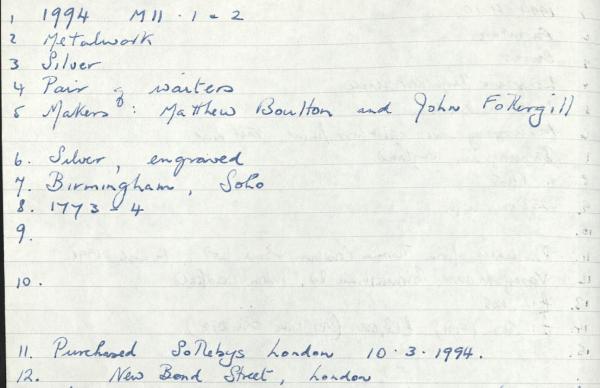 1 1994 M11 . 1 - 2
2 Metalwork
3 Silver
4 Pair of waiters
5 Makers : Matthew Boulton and John Fothergill
6. Silver, engraved
7. Birmingham, Soho
8. 1773 - 4
9.
10.
11. Purchased Sothebys London 10 . 3 . 1994.
12. New Bond Street, London